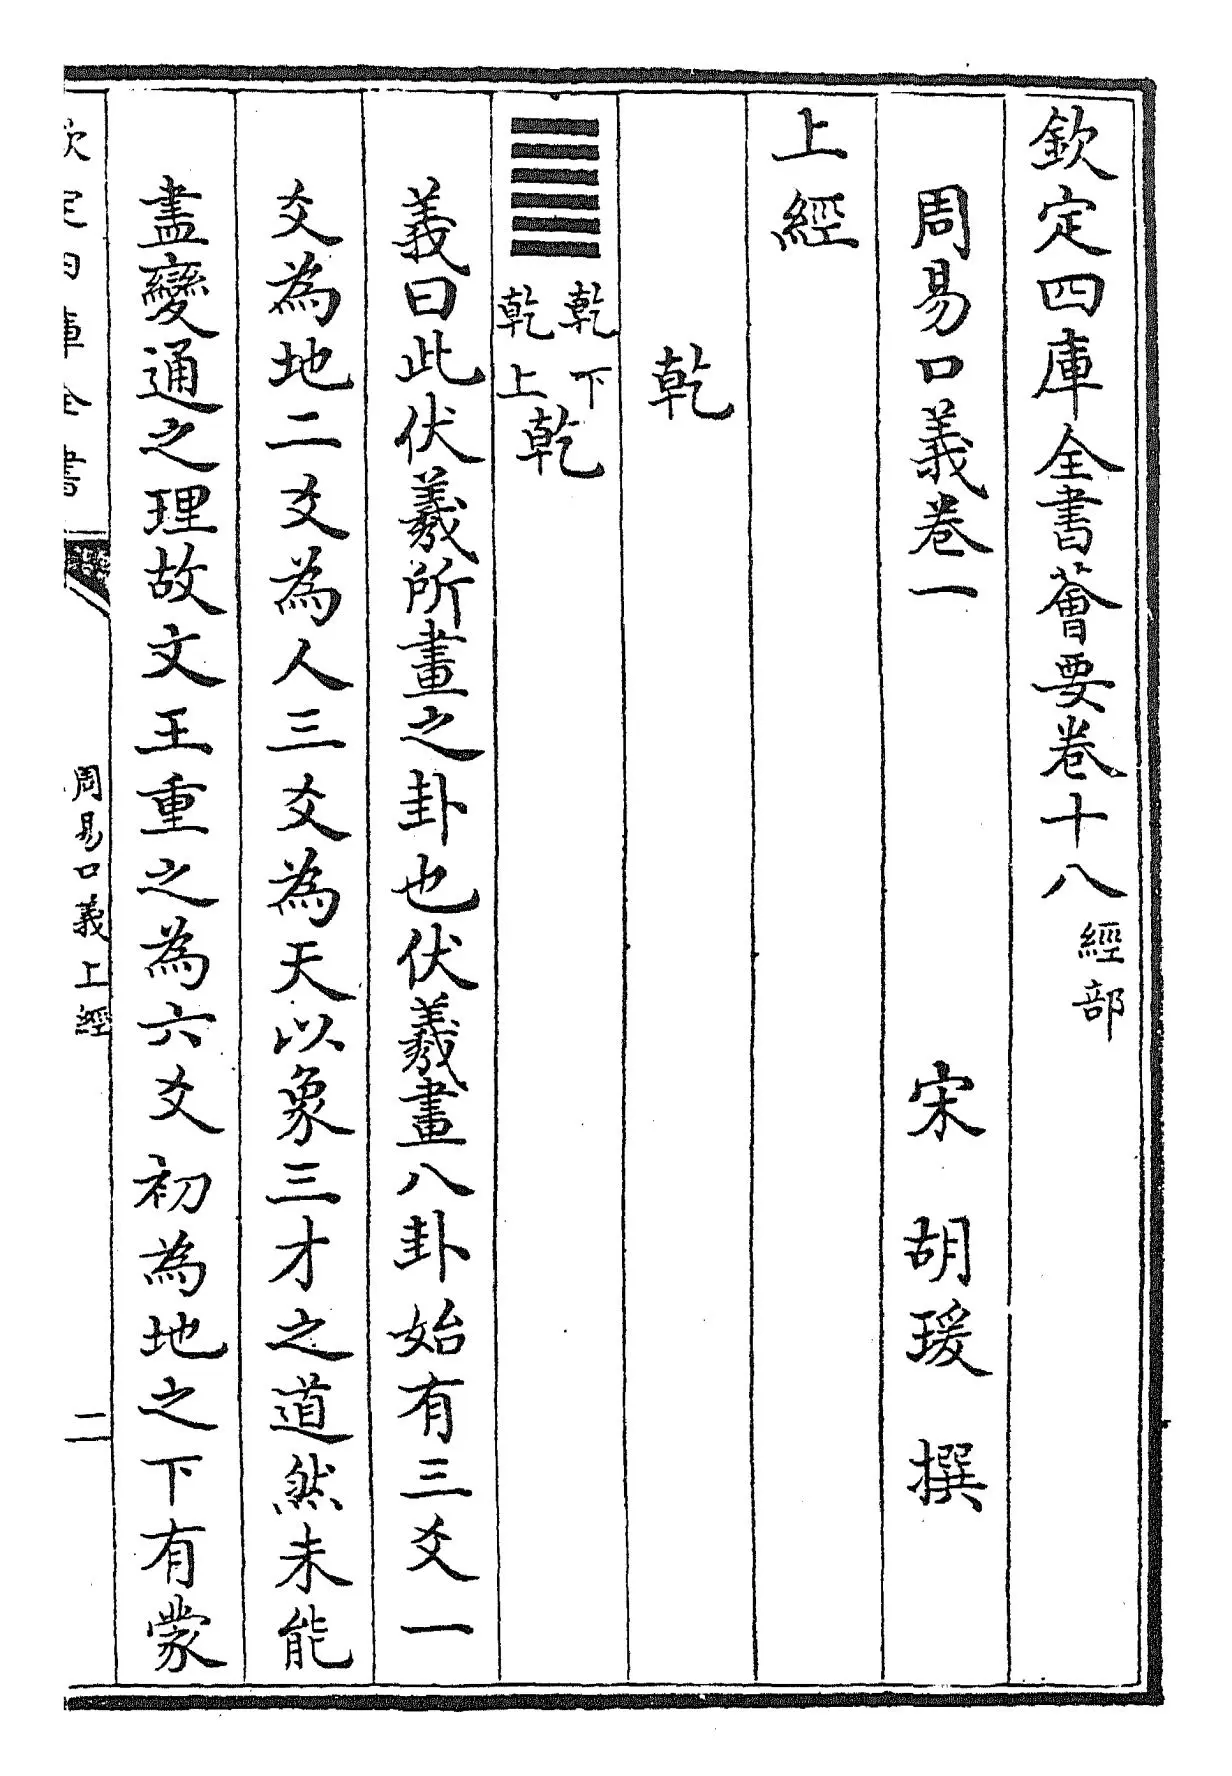 欽定四庫全書薈要卷十八 經部
周易口義卷一 宋 胡瑗 撰
上經
乾
䷀ 乾下乾上 乾
義曰此伏羲所畫之卦也伏羲畫八卦始有三爻一
爻為地二爻為人三爻為天以象三才之道然未能
盡變通之理故文王重之為六爻初為地之下有蒙
欽定四庫全書 周易口義 上經 二